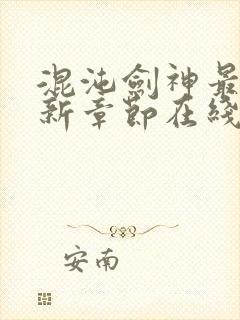 混沌劍神最
新章節在綫
安南